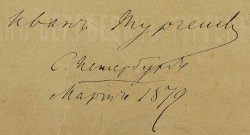 Иванъ Тургеневъ
С. Петербургъ
Мартъ 1879